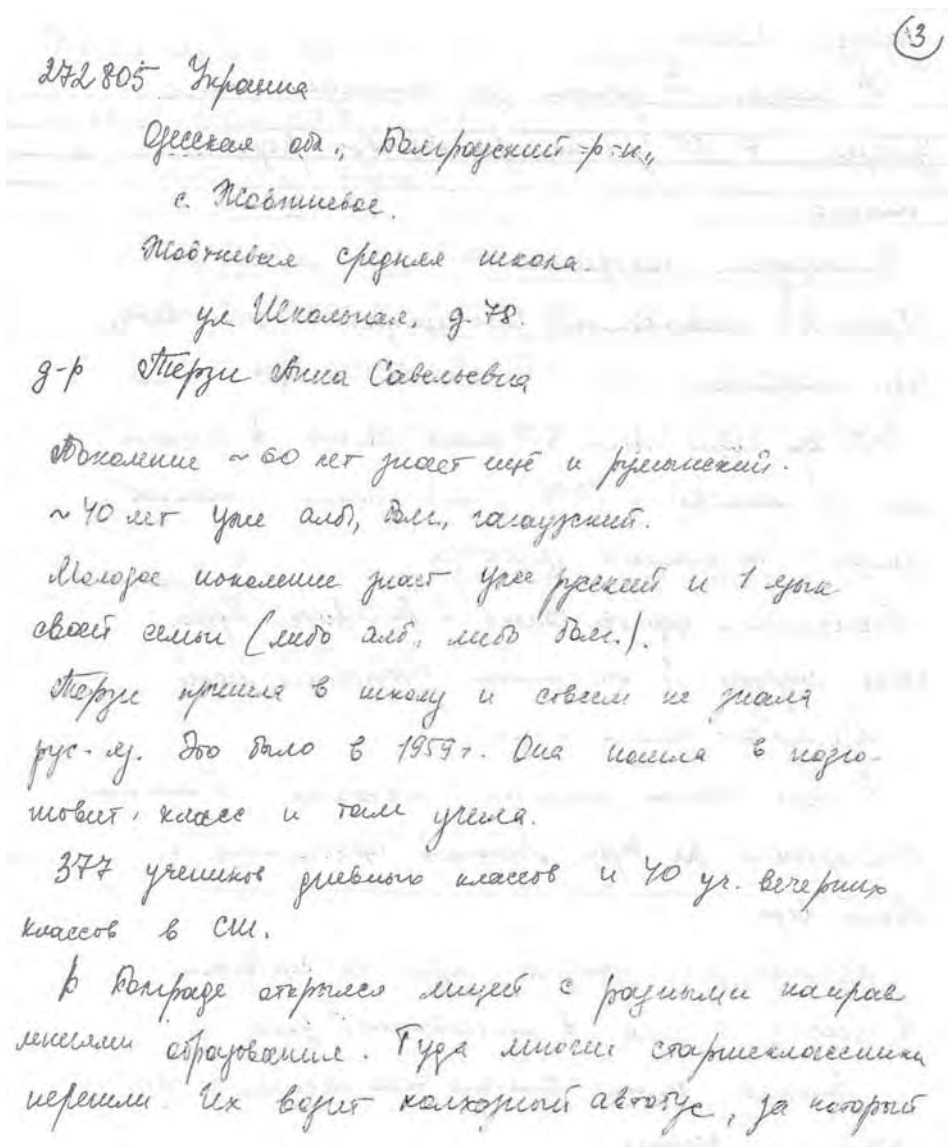 13
272805 Украина
Одесская обл., Болградский р-н,
с. Жовтневое.
Жовтневая средняя школа.
ул. Школьная, д. 78.
д-р Терзи Анна Савельевна
Поколение ~ 60 лет знает ещё и румынский.
~ 40 лет уже алб, болг., гагаузский.
Молодое поколение знает уже русский и 1 язык
своей семьи (либо алб., либо болг.).
Терзи пришла в школу и совсем не знала
рус. яз. Это было в 1959 г. Она пошла в подго-
товит. класс и там учила.
377 учеников дневных классов и 40 уч. вечерних
классов в СШ.
В Болграде открылся лицей с разными направ
лениями образования. Туда многие старшеклассники
перешли. Их возит колхозный автобус, за который